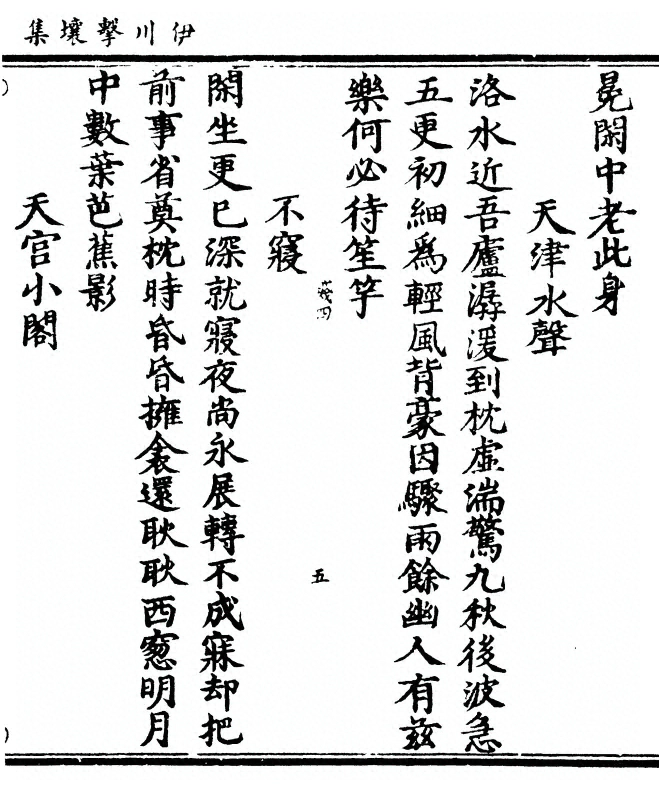 伊川擊壤集
冕閑中老此身
天津水聲
洛水近吾廬潺湲到枕虛湍驚九秋後波急
五更初細爲輕風背豪因驟雨餘幽人有茲
樂何必待笙竽
卷四
五
不寢
閑坐更已深就寢夜尚永展轉不成寐却把
前事省奠枕時昏昏擁衾還耿耿西窻明月
中數葉芭蕉影
天宮小閣